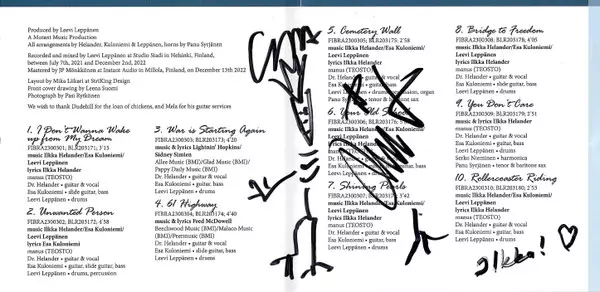 Produced by Leevi Leppänen
A Mutant Music Production
All arrangements by Helander, Kuloniemi & Leppänen, horns by Panu Syrjänen
Recorded and mixed by Leevi Leppänen at Studio Studi in Helsinki, Finland,
between July 7th, 2021 and December 2nd, 2022
Mastered by JP Mönkkönen at Instant Audio in Millola, Finland, on December 13th 2022
Layout by Mika Liikari at StriKing Design
Front cover drawing by Leena Suomi
Photograph by Pasi Rytkönen
We wish to thank Dudekill for the loan of chickens, and Mela for his guitar services
1. I Don't Wanna Wake
up from My Dream
FIBRA2300301; BLR203171; 3'15
music Ilkka Helander/Esa Kuloniemi/
Leevi Leppänen
lyrics Ilkka Helander
manus (TEOSTO)
Dr. Helander • guitar & vocal
Esa Kuloniemi • slide guitar, bass
Leevi Leppänen • drums
2. Unwanted Person
FIBRA2300302; BLR203172; 4'38
music Ilkka Helander/Esa Kuloniemi/
Leevi Leppänen
lyrics Esa Kuloniemi
manus (TEOSTO)
Dr. Helander • guitar & vocal
Esa Kuloniemi • guitar, slide guitar, bass
Leevi Leppänen • drums, percussion
3. War is Starting Again
FIBRA2300303; BLR203173; 4'20
music & lyrics Lightnin' Hopkins/
Sidney Simien
Allee Music (BMI)/Glad Music (BMI)/
Pappy Daily Music (BMI)
Dr. Helander • guitar & vocal
Esa Kuloniemi • guitar, bass
Leevi Leppänen • drums
4. 61 Highway
FIBRA2300304; BLR203174; 4'40
music & lyrics Fred McDowell
Beechwood Music (BMI)/Malaco Music
(BMI)/Peermusic (BMI)
Dr. Helander • guitar & vocal
Esa Kuloniemi • slide guitar, bass
Leevi Leppänen • drums
5. Cemetery Wall
FIBRA2300305; BLR203175; 2'58
music Ilkka Helander/Esa Kuloniemi/
Leevi Leppänen
lyrics Esa Kuloniemi
manus (TEOSTO)
Dr. Helander • guitar & vocal
Esa Kuloniemi • guitar, bass
Leevi Leppänen • drums, percussion, organ
Panu Syrjänen • tenor & baritone sax
6. Your Old School
FIBRA2300306; BLR203176;
music Ilkka Helander/Esa Kuloniemi/
Leevi Leppänen
lyrics Ilkka Helander
manus (TEOSTO)
Dr. Helander • guitar & vocal
Esa Kuloniemi • guitar, bass
Leevi Leppänen • drums
7. Shining Pearls
FIBRA2300307; BLR203177; 3'42
music Ilkka Helander/Esa Kuloniemi/
Leevi Leppänen
lyrics Ilkka Helander
manus (TEOSTO)
Dr. Helander • guitar & vocal
Esa Kuloniemi • guitar, bass
Leevi Leppänen • drums
8. Bridge to Freedom
FIBRA2300308; BLR203178; 4'05
music Ilkka Helander/Esa Kuloniemi/
Leevi Leppänen
lyrics Esa Kuloniemi
manus (TEOSTO)
Dr. Helander • guitar & vocal
Esa Kuloniemi • slide guitar, bass
Leevi Leppänen • drums
9. You Don't Care
FIBRA2300309; BLR203179; 2'51
music Ilkka Helander/Esa Kuloniemi/
Leevi Leppänen
lyrics Ilkka Helander
manus (TEOSTO)
Dr. Helander • guitar & vocal
Esa Kuloniemi • guitar, bass
Leevi Leppänen • drums
Serko Nieminen • harmonica
Panu Syrjänen • tenor & baritone sax
10. Rollercoaster Riding
FIBRA2300310; BLR203180; 2'53
music Ilkka Helander/Esa Kuloniemi/
Leevi Leppänen
lyrics Ilkka Helander
manus (TEOSTO)
Dr. Helander • guitar & vocal
Esa Kuloniemi • guitar, bass
Leevi Leppänen • drums
Ilkka!